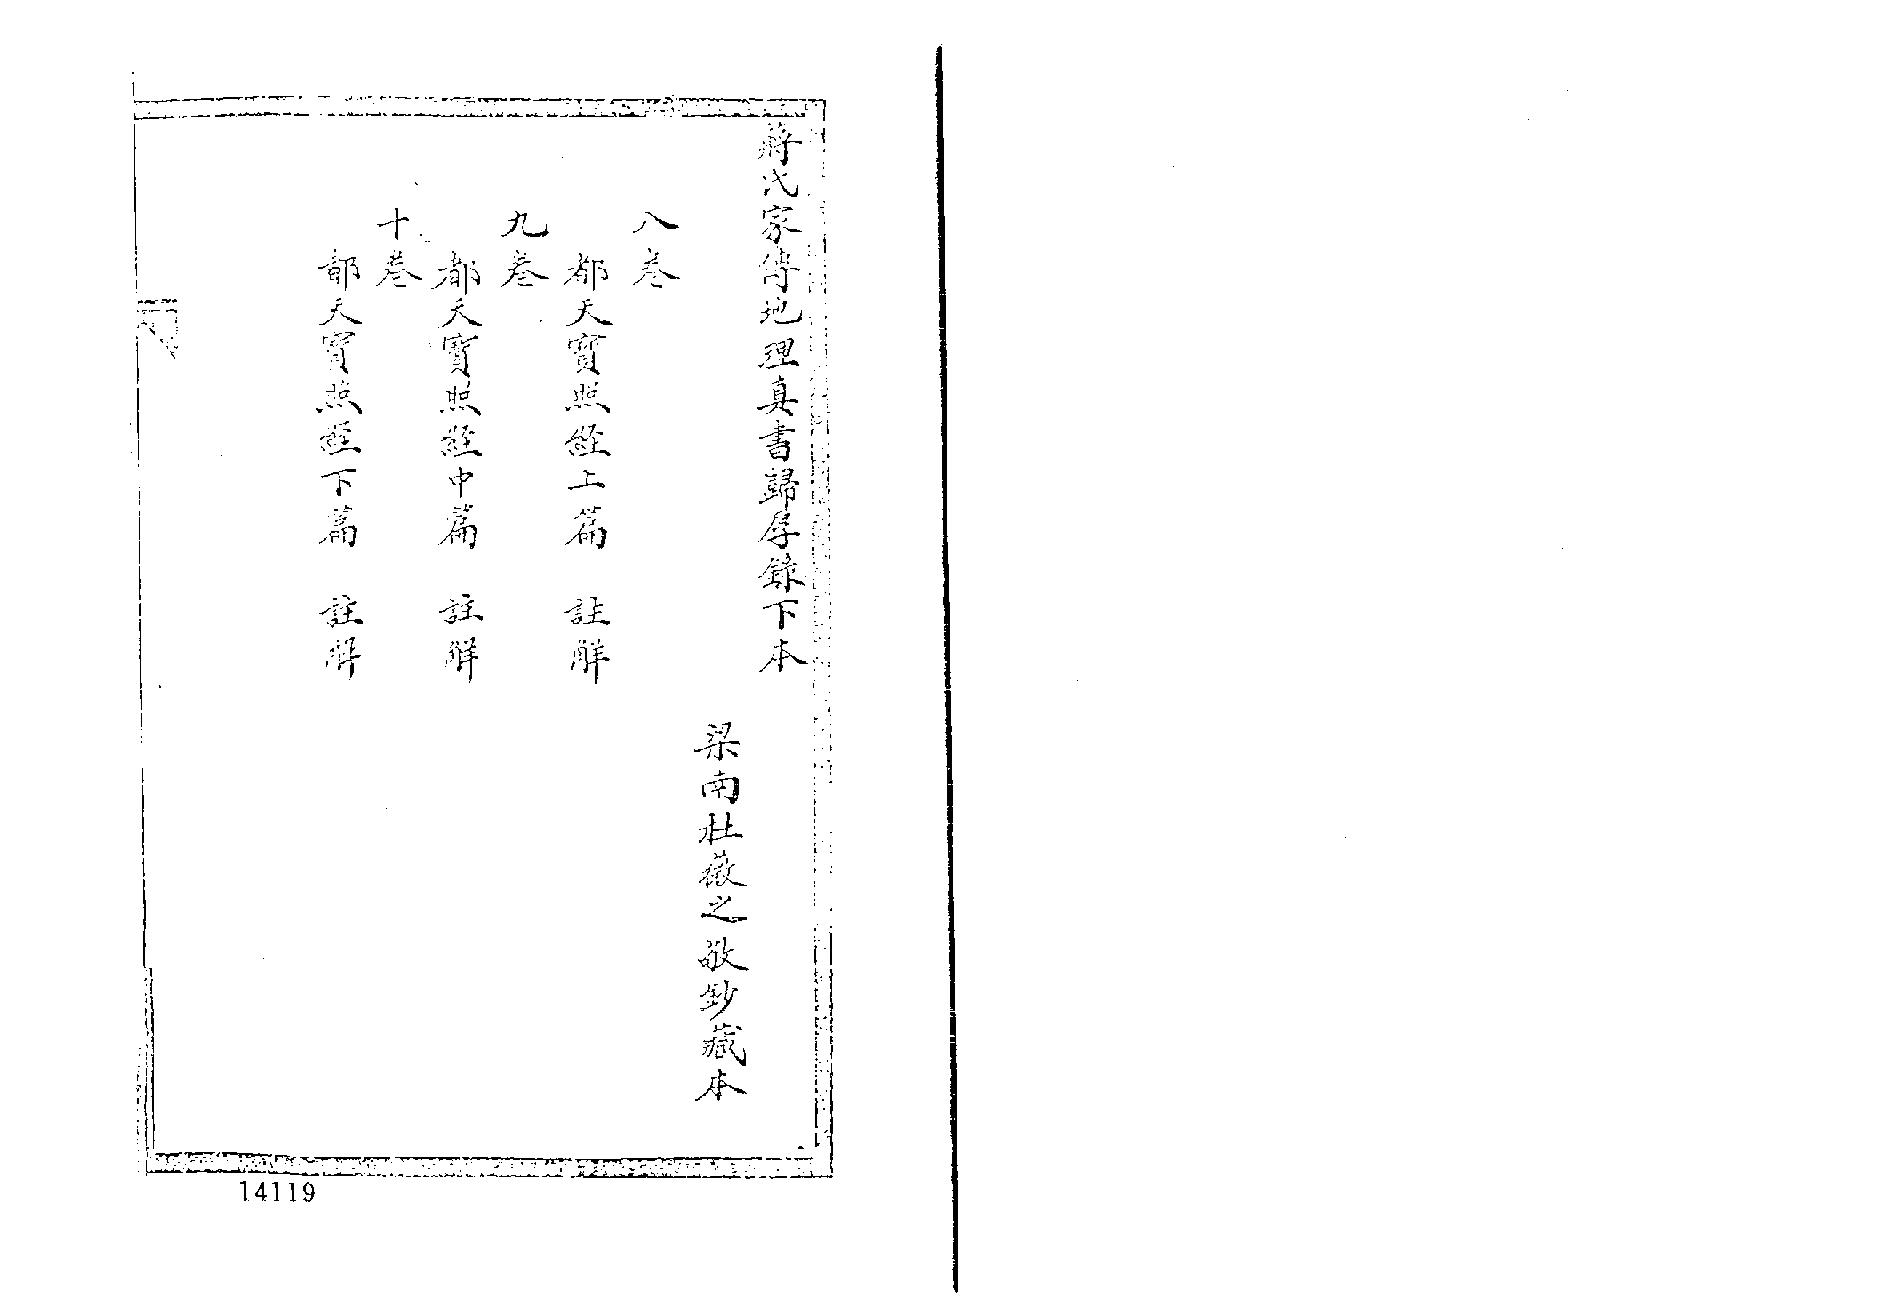 蔣氏家傳地理真書歸厚錄下本
梁南杜薇之敬鈔藏本
八卷
都天寶照經上篇　註解
九卷
都天寶照經中篇　註解
十卷
都天寶照經下篇　註解
14119